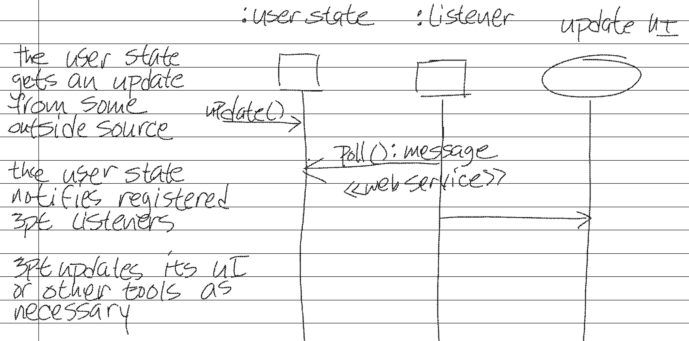 :user state :Listener update UI
the user state
gets an update
from some
outside source
update()
poll(): message
<<web service>>
the user state
notifies registered
3pt listeners
3pt updates its UI
or other tools as
necessary